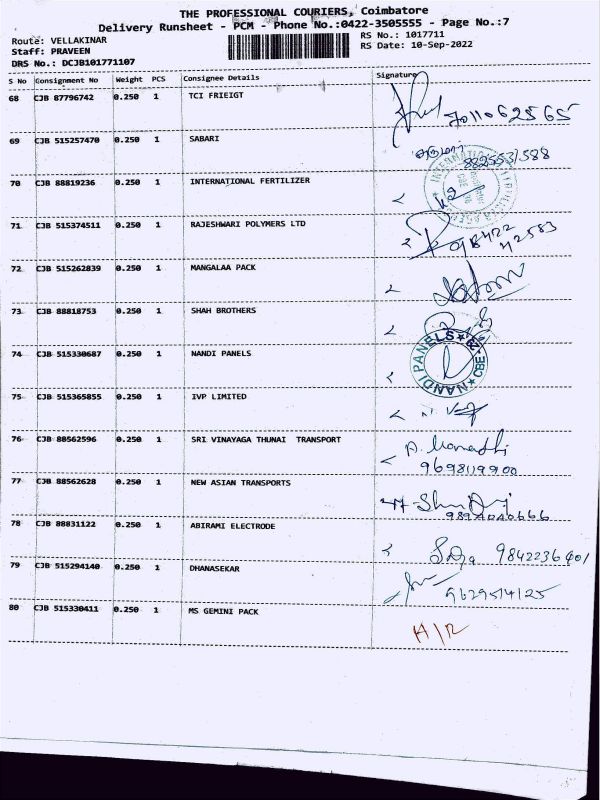 THE PROFESSIONAL COURIERS, Coimbatore
Delivery Runsheet - PCM - Phone No.:0422-3505555 - Page No.:7
Route: VELLAKINAR
RS No.: 1017711
Staff: PRAVEEN
RS Date: 10-Sep-2022
DRS No.: DCJB101771107
S No Consignment No Weight PCS Consignee Details Signature
68 CJB 87796742 0.250 1 TCI FRIEIGT
69 CJB 515257470 0.250 1 SABARI
70 CJB 88819236 0.250 1 INTERNATIONAL FERTILIZER
71 CJB 515374511 0.250 1 RAJESHWARI POLYMERS LTD
72 CJB 515262839 0.250 1 MANGALAA PACK
73 CJB 88818753 0.250 1 SHAH BROTHERS
74 CJB 515330687 0.250 1 NANDI PANELS NANDI PANELS CBE
75 CJB 515365855 0.250 1 IVP LIMITED
76 CJB 88562596 0.250 1 SRI VINAYAGA THUNAI TRANSPORT
9698119900
77 CJB 88562628 0.250 1 NEW ASIAN TRANSPORTS
78 CJB 88831122 0.250 1 ABIRAMI ELECTRODE 9842236401
79 CJB 515294140 0.250 1 DHANASEKAR 9629514125
80 CJB 515330411 0.250 1 MS GEMINI PACK